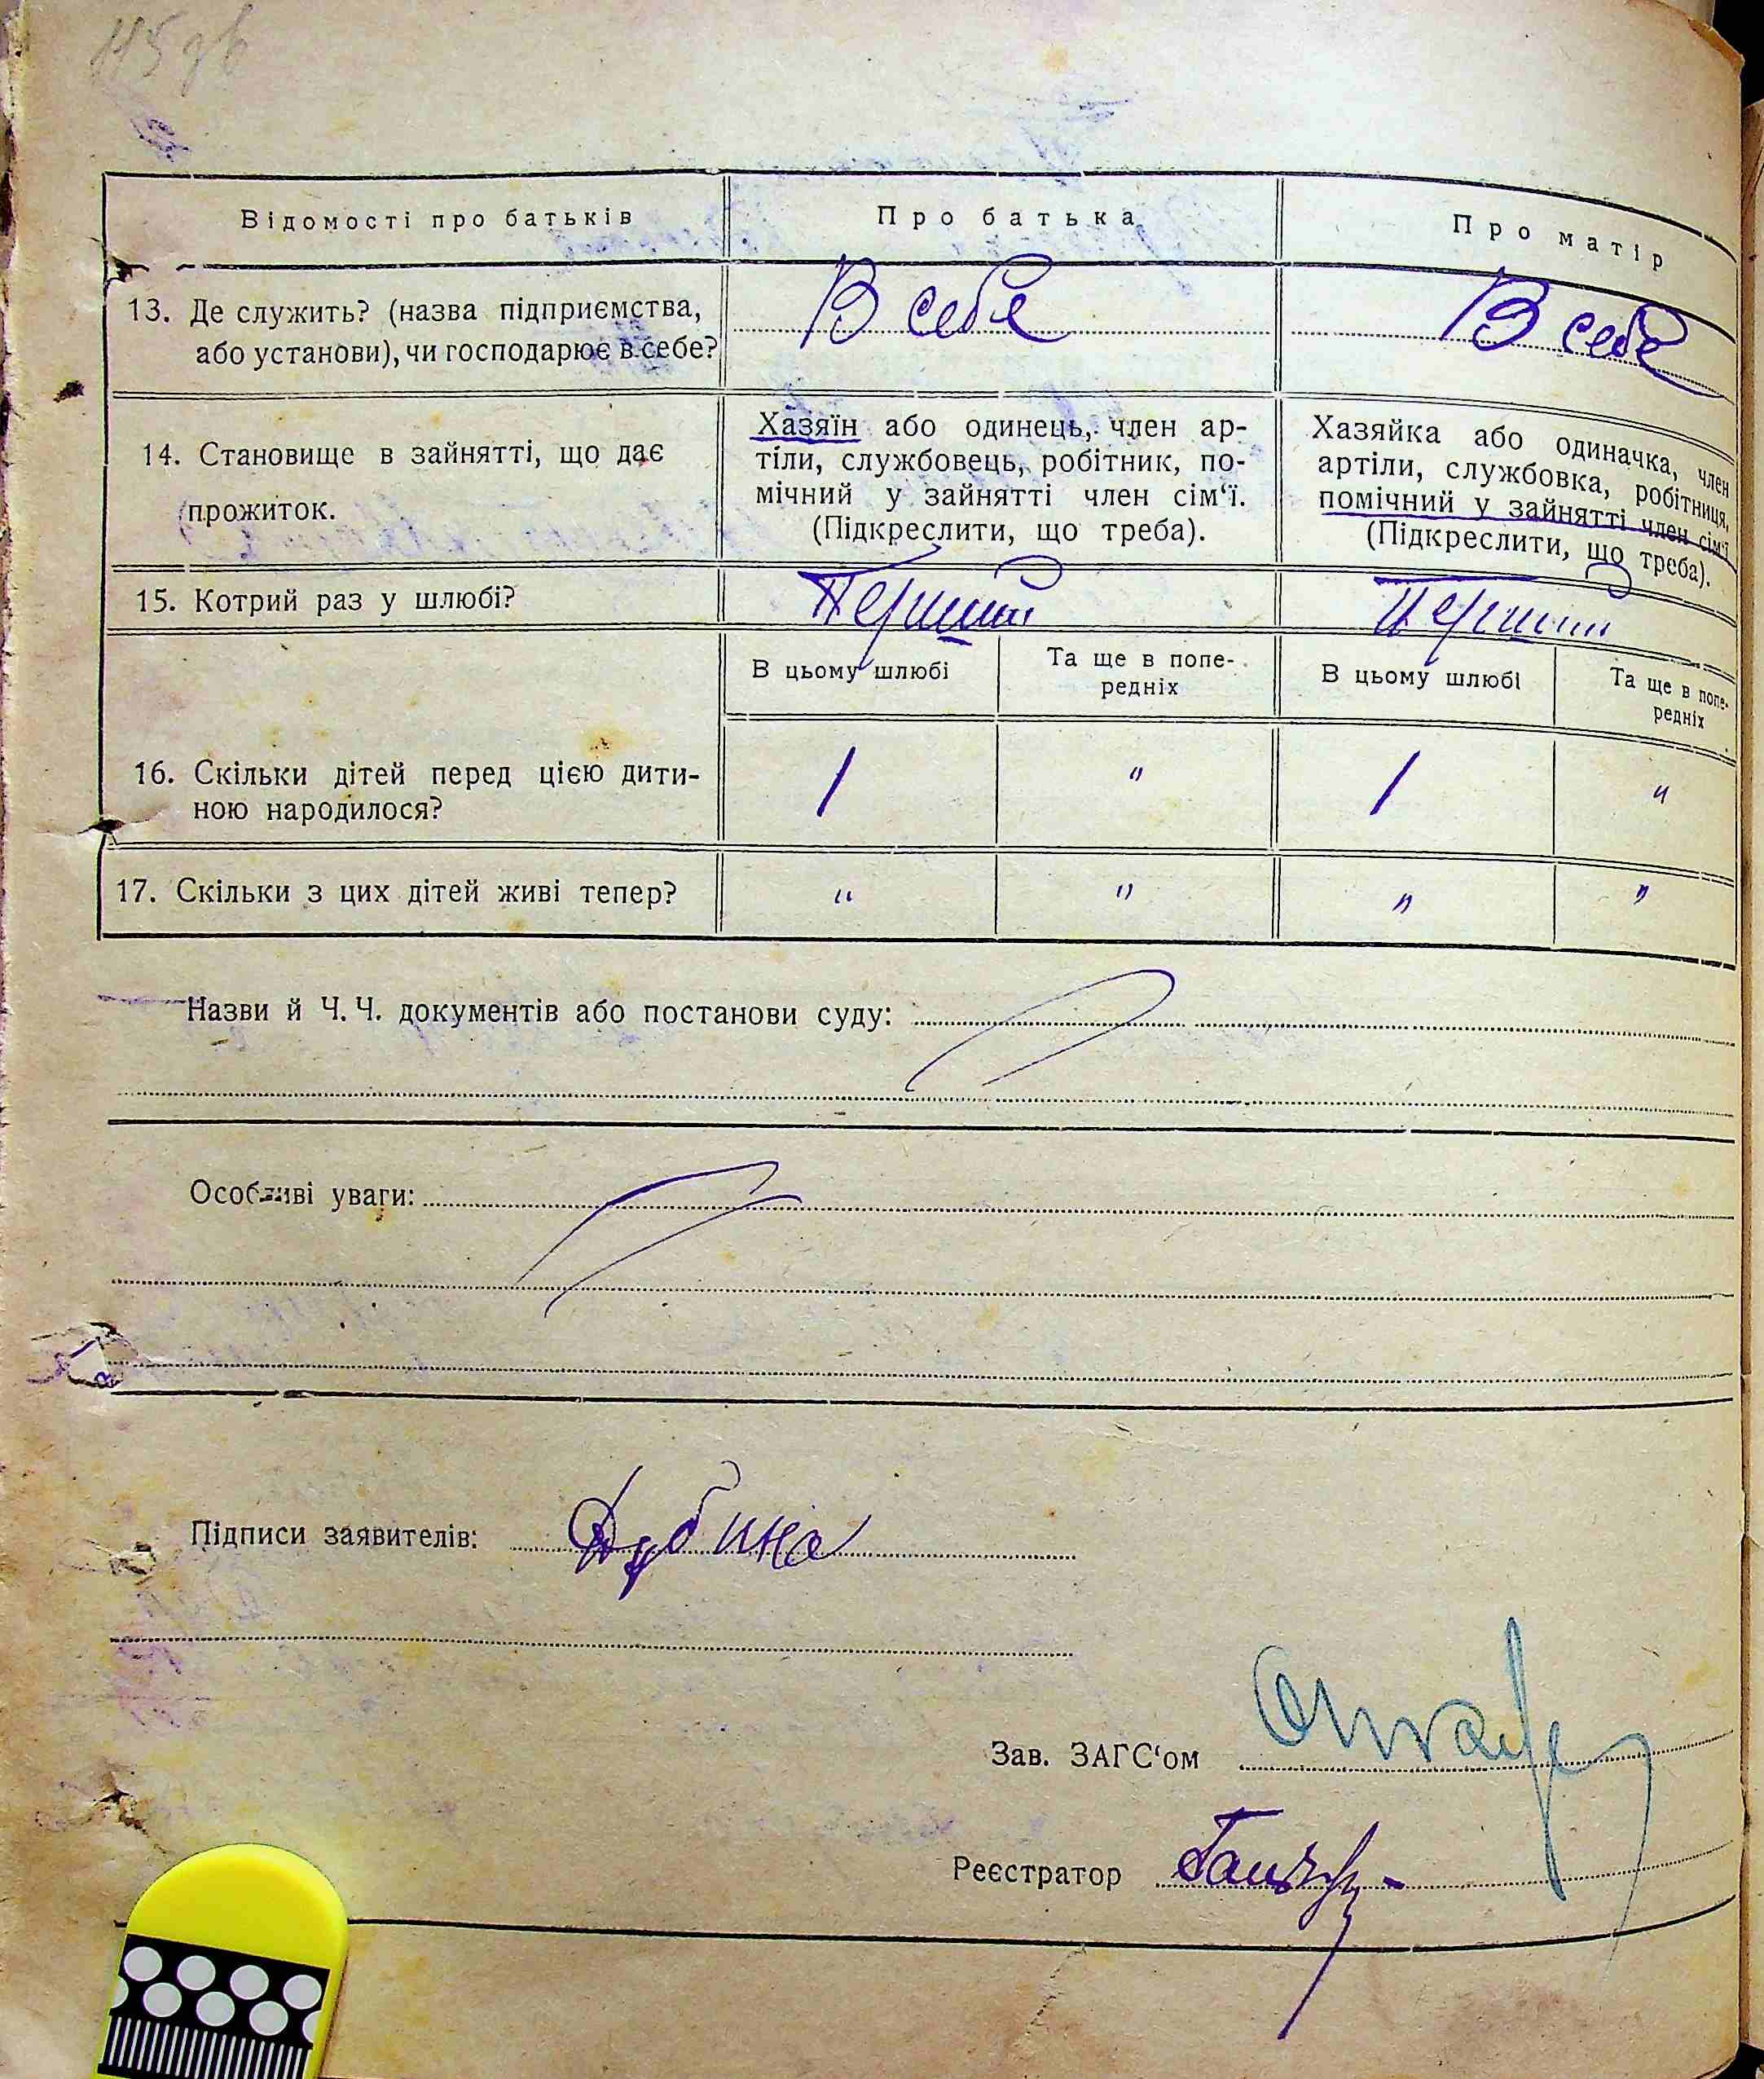 Відомості про батьків Про батька Про матір
13. Де служить? (назва підприємства, В себе В себе
або установи), чи господарює в себе?
Хазяїн або одинець, член ар- Хазяйка або одиначка, член
14. Становище в зайнятті, що дає тіли, службовець, робітник, по- артіли, службовка, робітниця,
прожиток. мічний у зайнятті член сім‘ї. помічний у зайнятті член сім‘ї
(Підкреслити, що треба). (Підкреслити, що треба).
15. Котрий раз у шлюбі? Перший Перший
В цьому шлюбі Та ще в попе- В цьому шлюбі Та ще в попе-
редніх редніх
16. Скільки дітей перед цією дити- 1 " 1 "
ною народилося?
17. Скільки з цих дітей живі тепер? " " " "
Назви й Ч. Ч. документів або постанови суду:
Особливі уваги:
Підписи заявителів: Дубина
Зав. ЗАГС‘ом
Реєстратор